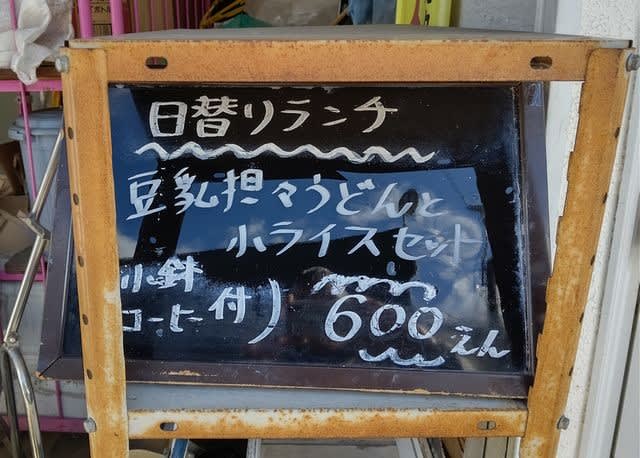 日替りランチ
豆乳担々うどんと
小ライスセット
小鉢
コーヒー付) 600えん